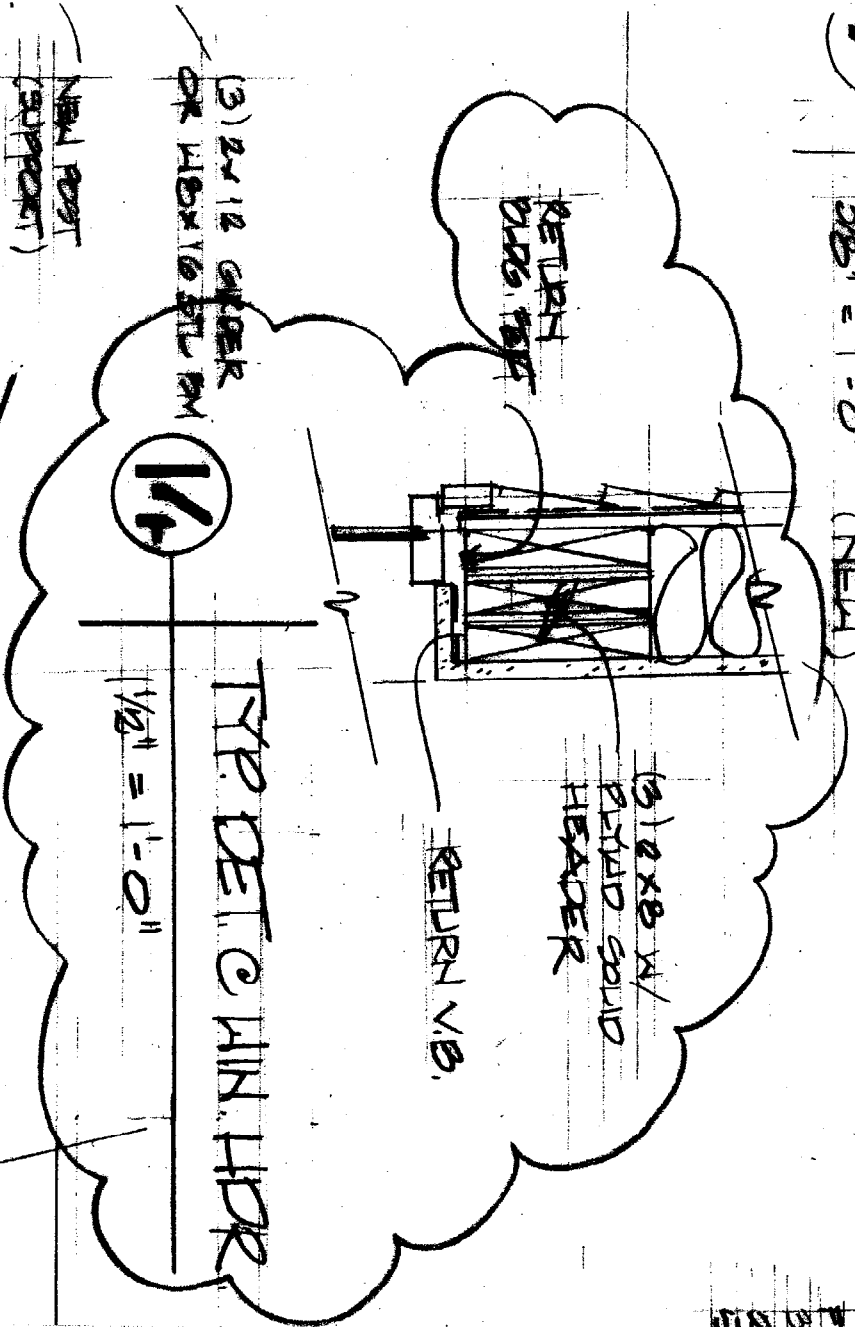 3/8" = 1'-0" (NEW)
RETURN
BLDG. PAP.
(3) 2x8 W/
PLYWD SOLID
HEADER
RETURN V.B.
(3) 2x12 GIRDER
OR W8x16 STL BM
NEW POST
(SUPPORT)
TYP. DET. @ WIN. HDR
1 1/2" = 1'-0"